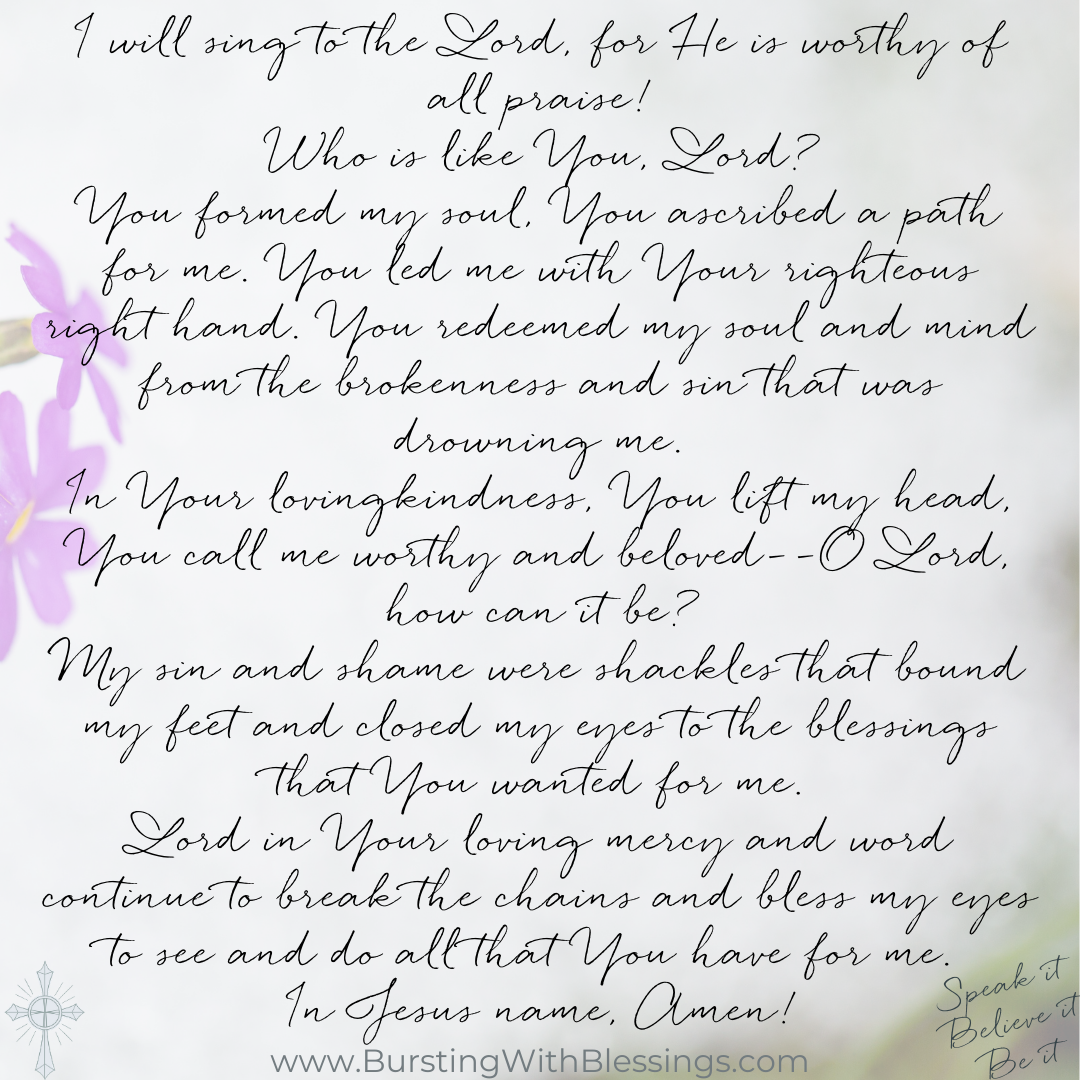 I will sing to the Lord, for He is worthy of
all praise!
Who is like You, Lord?
You formed my soul, You ascribed a path
for me. You led me with Your righteous
right hand. You redeemed my soul and mind
from the brokenness and sin that was
drowning me.
In Your lovingkindness, You lift my head,
You call me worthy and beloved--O Lord,
how can it be?
My sin and shame were shackles that bound
my feet and closed my eyes to the blessings
that You wanted for me.
Lord in Your loving mercy and word
continue to break the chains and bless my eyes
to see and do all that You have for me.
In Jesus name, Amen!
Speak it
Believe it
Be it
www.BurstingWithBlessings.com